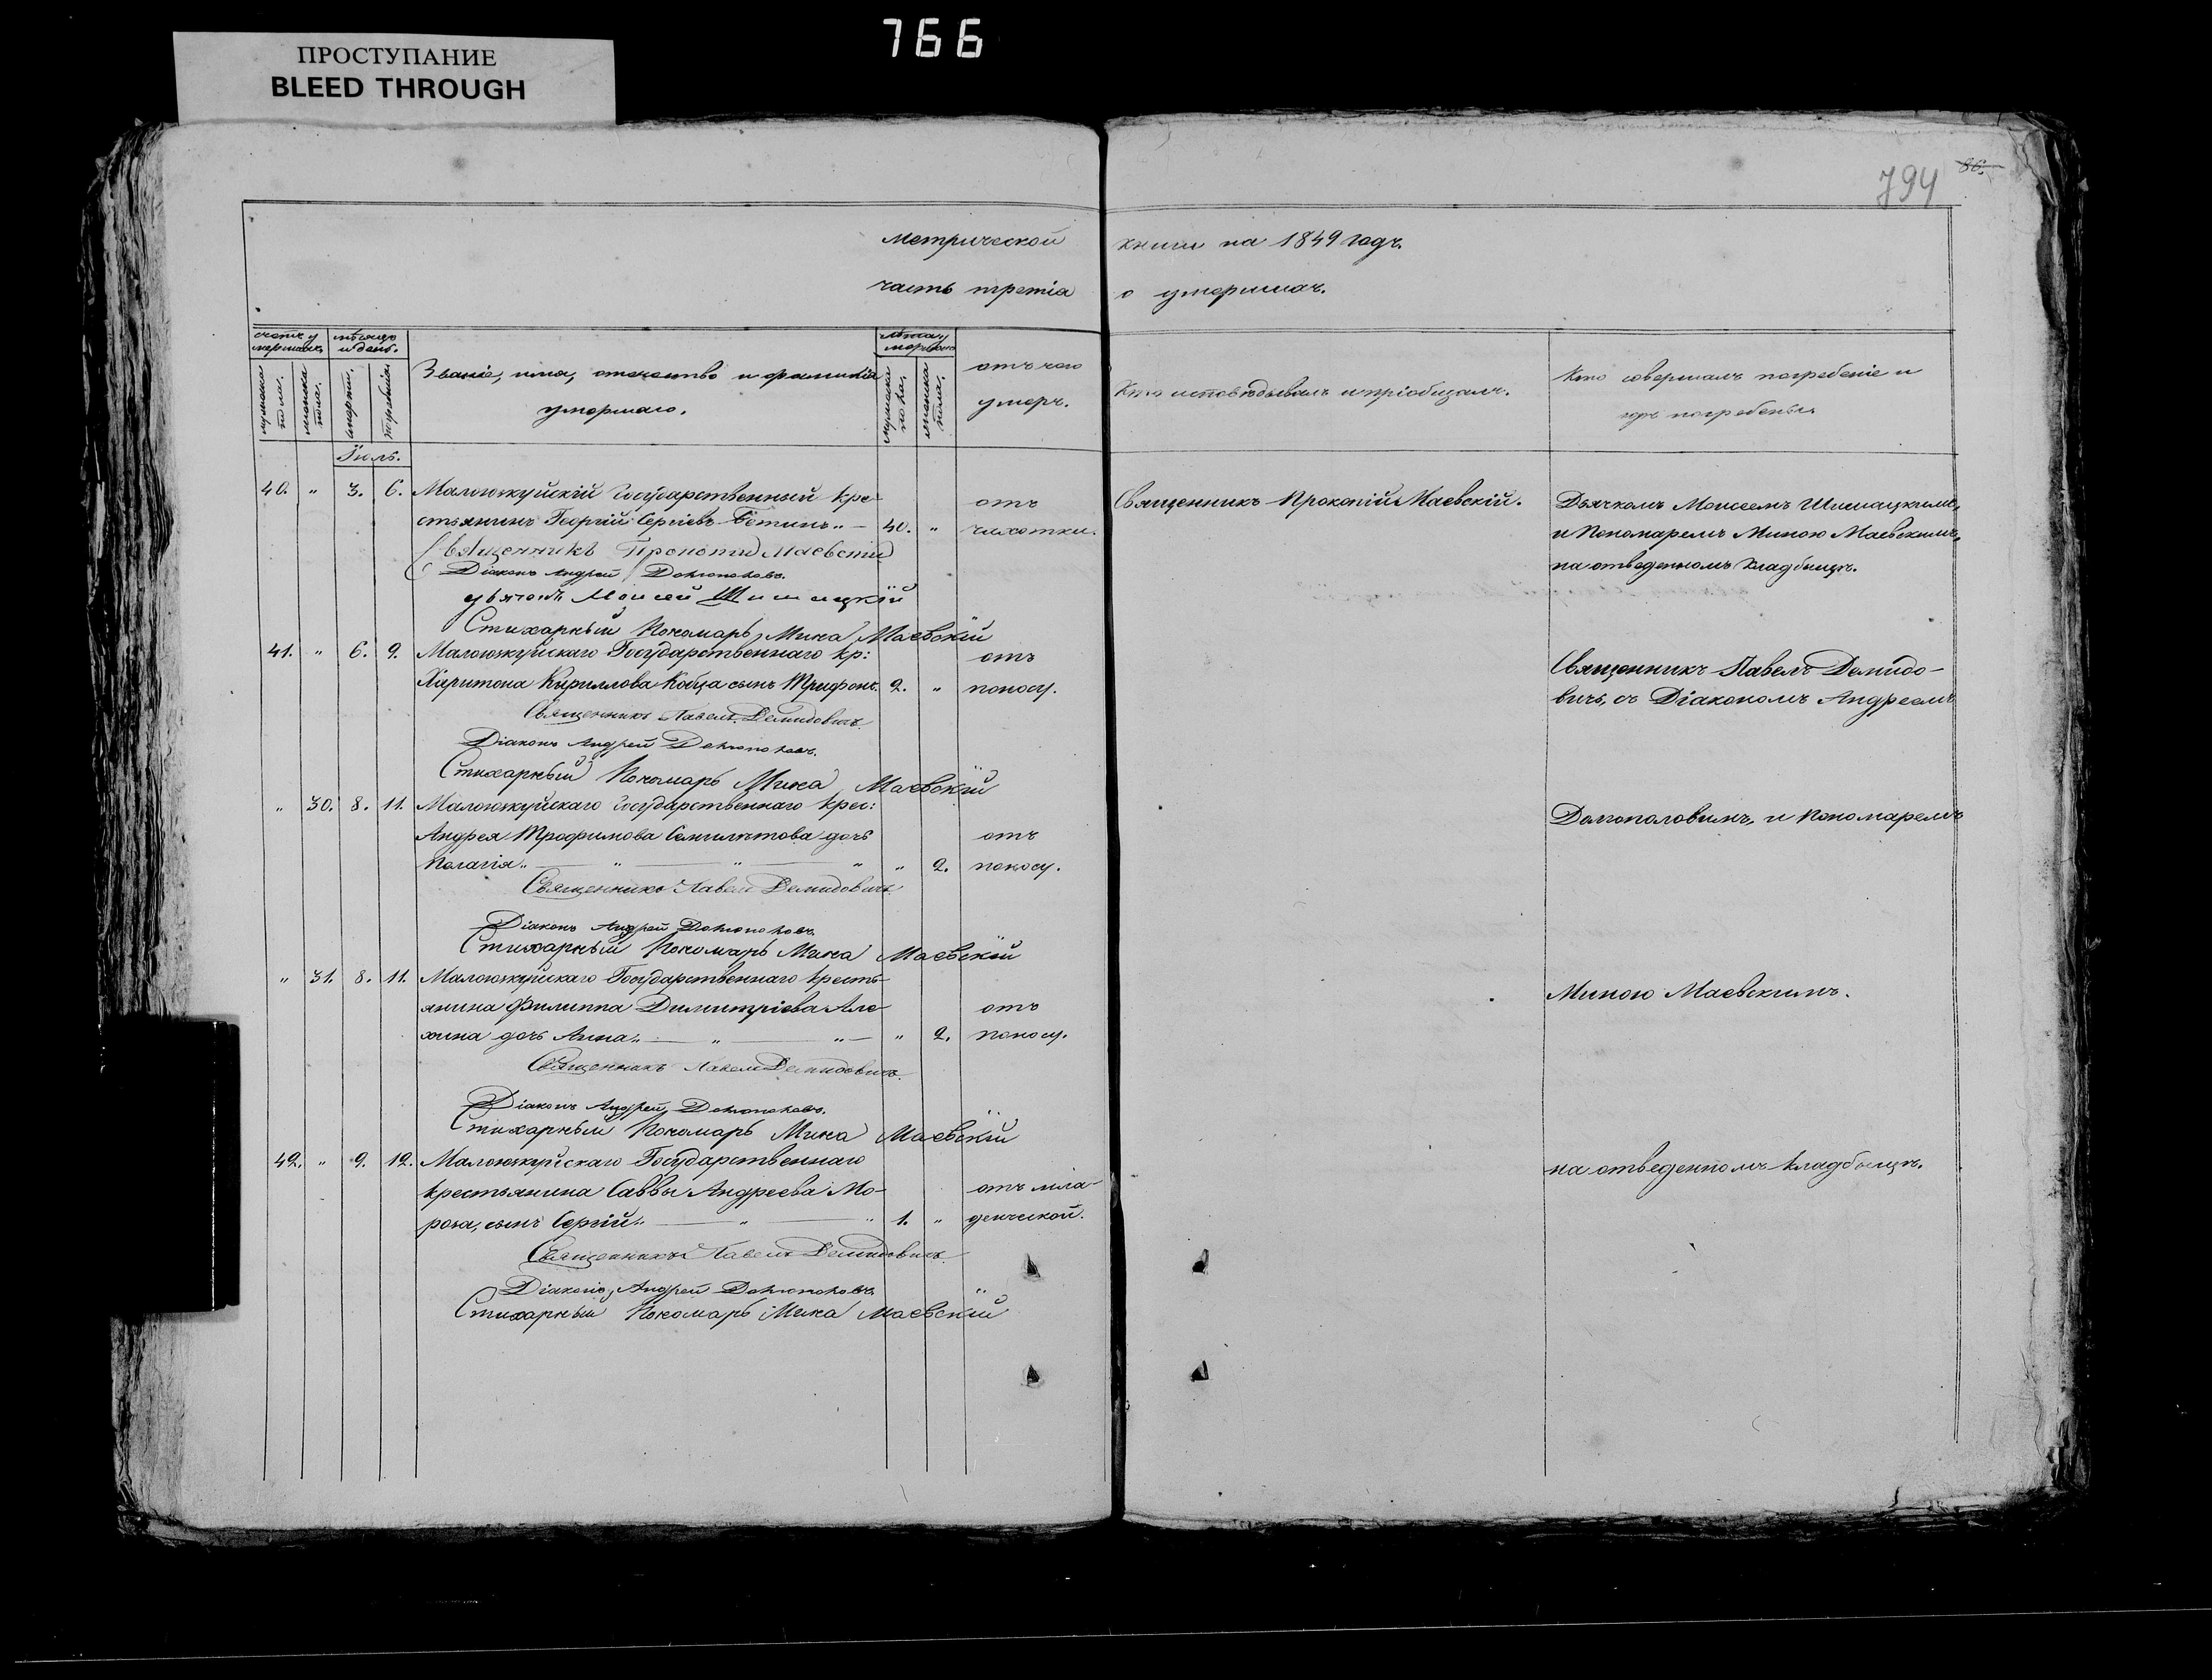 766
ПРОСТУПАНИЕ
BLEED THROUGH
794
86.
Метрической книги на 1849 годъ.
часть третіа о умершихъ.
счетъ у
мершихъ
мѣсяцъ
и день.
мужска
пола.
женска
пола.
смерти.
погребенія.
Званіе, имя, отечество и фамилія
умершаго.
лѣта у
мершаго
мужска
пола.
женска
пола.
отъ чего
умеръ.
Кто исповѣдывалъ и пріобщалъ.
Кто совершалъ погребеніе и
гдѣ погребены.
Іюль.
40. " 3. 6. Малоюжуйскій Государственный кре-
стьянинъ Георгій Сергіевъ - 40. " отъ
чихотки.
Священникъ Прокопій Маевскій.
Дьячкомъ Моисеемъ Шишацкимъ,
и Пономаремъ Миною Маевскимъ,
на отведенномъ кладбищѣ.
Священникъ Прокопій Маевскій
Діаконъ Андрей Долгополовъ.
Дьячокъ Моисей Шишацкій
Стихарный Пономарь Мина Маевскій
41. " 6. 9. Малоюжуйскаго Государственнаго кр:
Харитона Кириллова Кобца сынъ Трифонъ. 2. " отъ
поносу.
Священникъ Павелъ Демидо-
вичъ, съ Діакономъ Андреемъ
Священникъ Павелъ Демидовичъ.
Діаконъ Андрей Долгополовъ.
Стихарный Пономарь Мина Маевскій
" 30. 8. 11. Малоюжуйскаго Государственнаго крес:
Андрея Трофимова дочь
Пелагія " " " " 2. отъ
поносу.
Долгополовымъ, и Пономаремъ
Священникъ Павелъ Демидовичъ.
Діаконъ Андрей Долгополовъ.
Стихарный Пономарь Мина Маевскій
" 31. 8. 11. Малоюжуйскаго Государственнаго кресть-
янина Филиппа Димитріева Але-
хина дочь Анна " " " 2. отъ
поносу.
Миною Маевскимъ.
Священникъ Павелъ Демидовичъ.
Діаконъ Андрей Долгополовъ.
Стихарный Пономарь Мина Маевскій
42. " 9. 12. Малоюжуйскаго Государственнаго
крестьянина Саввы Андреева Мо-
роза, сынъ Сергій " " " 1. " отъ мла-
денческой.
на отведенномъ кладбищѣ.
Священникъ Павелъ Демидовичъ.
Діаконъ Андрей Долгополовъ.
Стихарный Пономарь Мина Маевскій